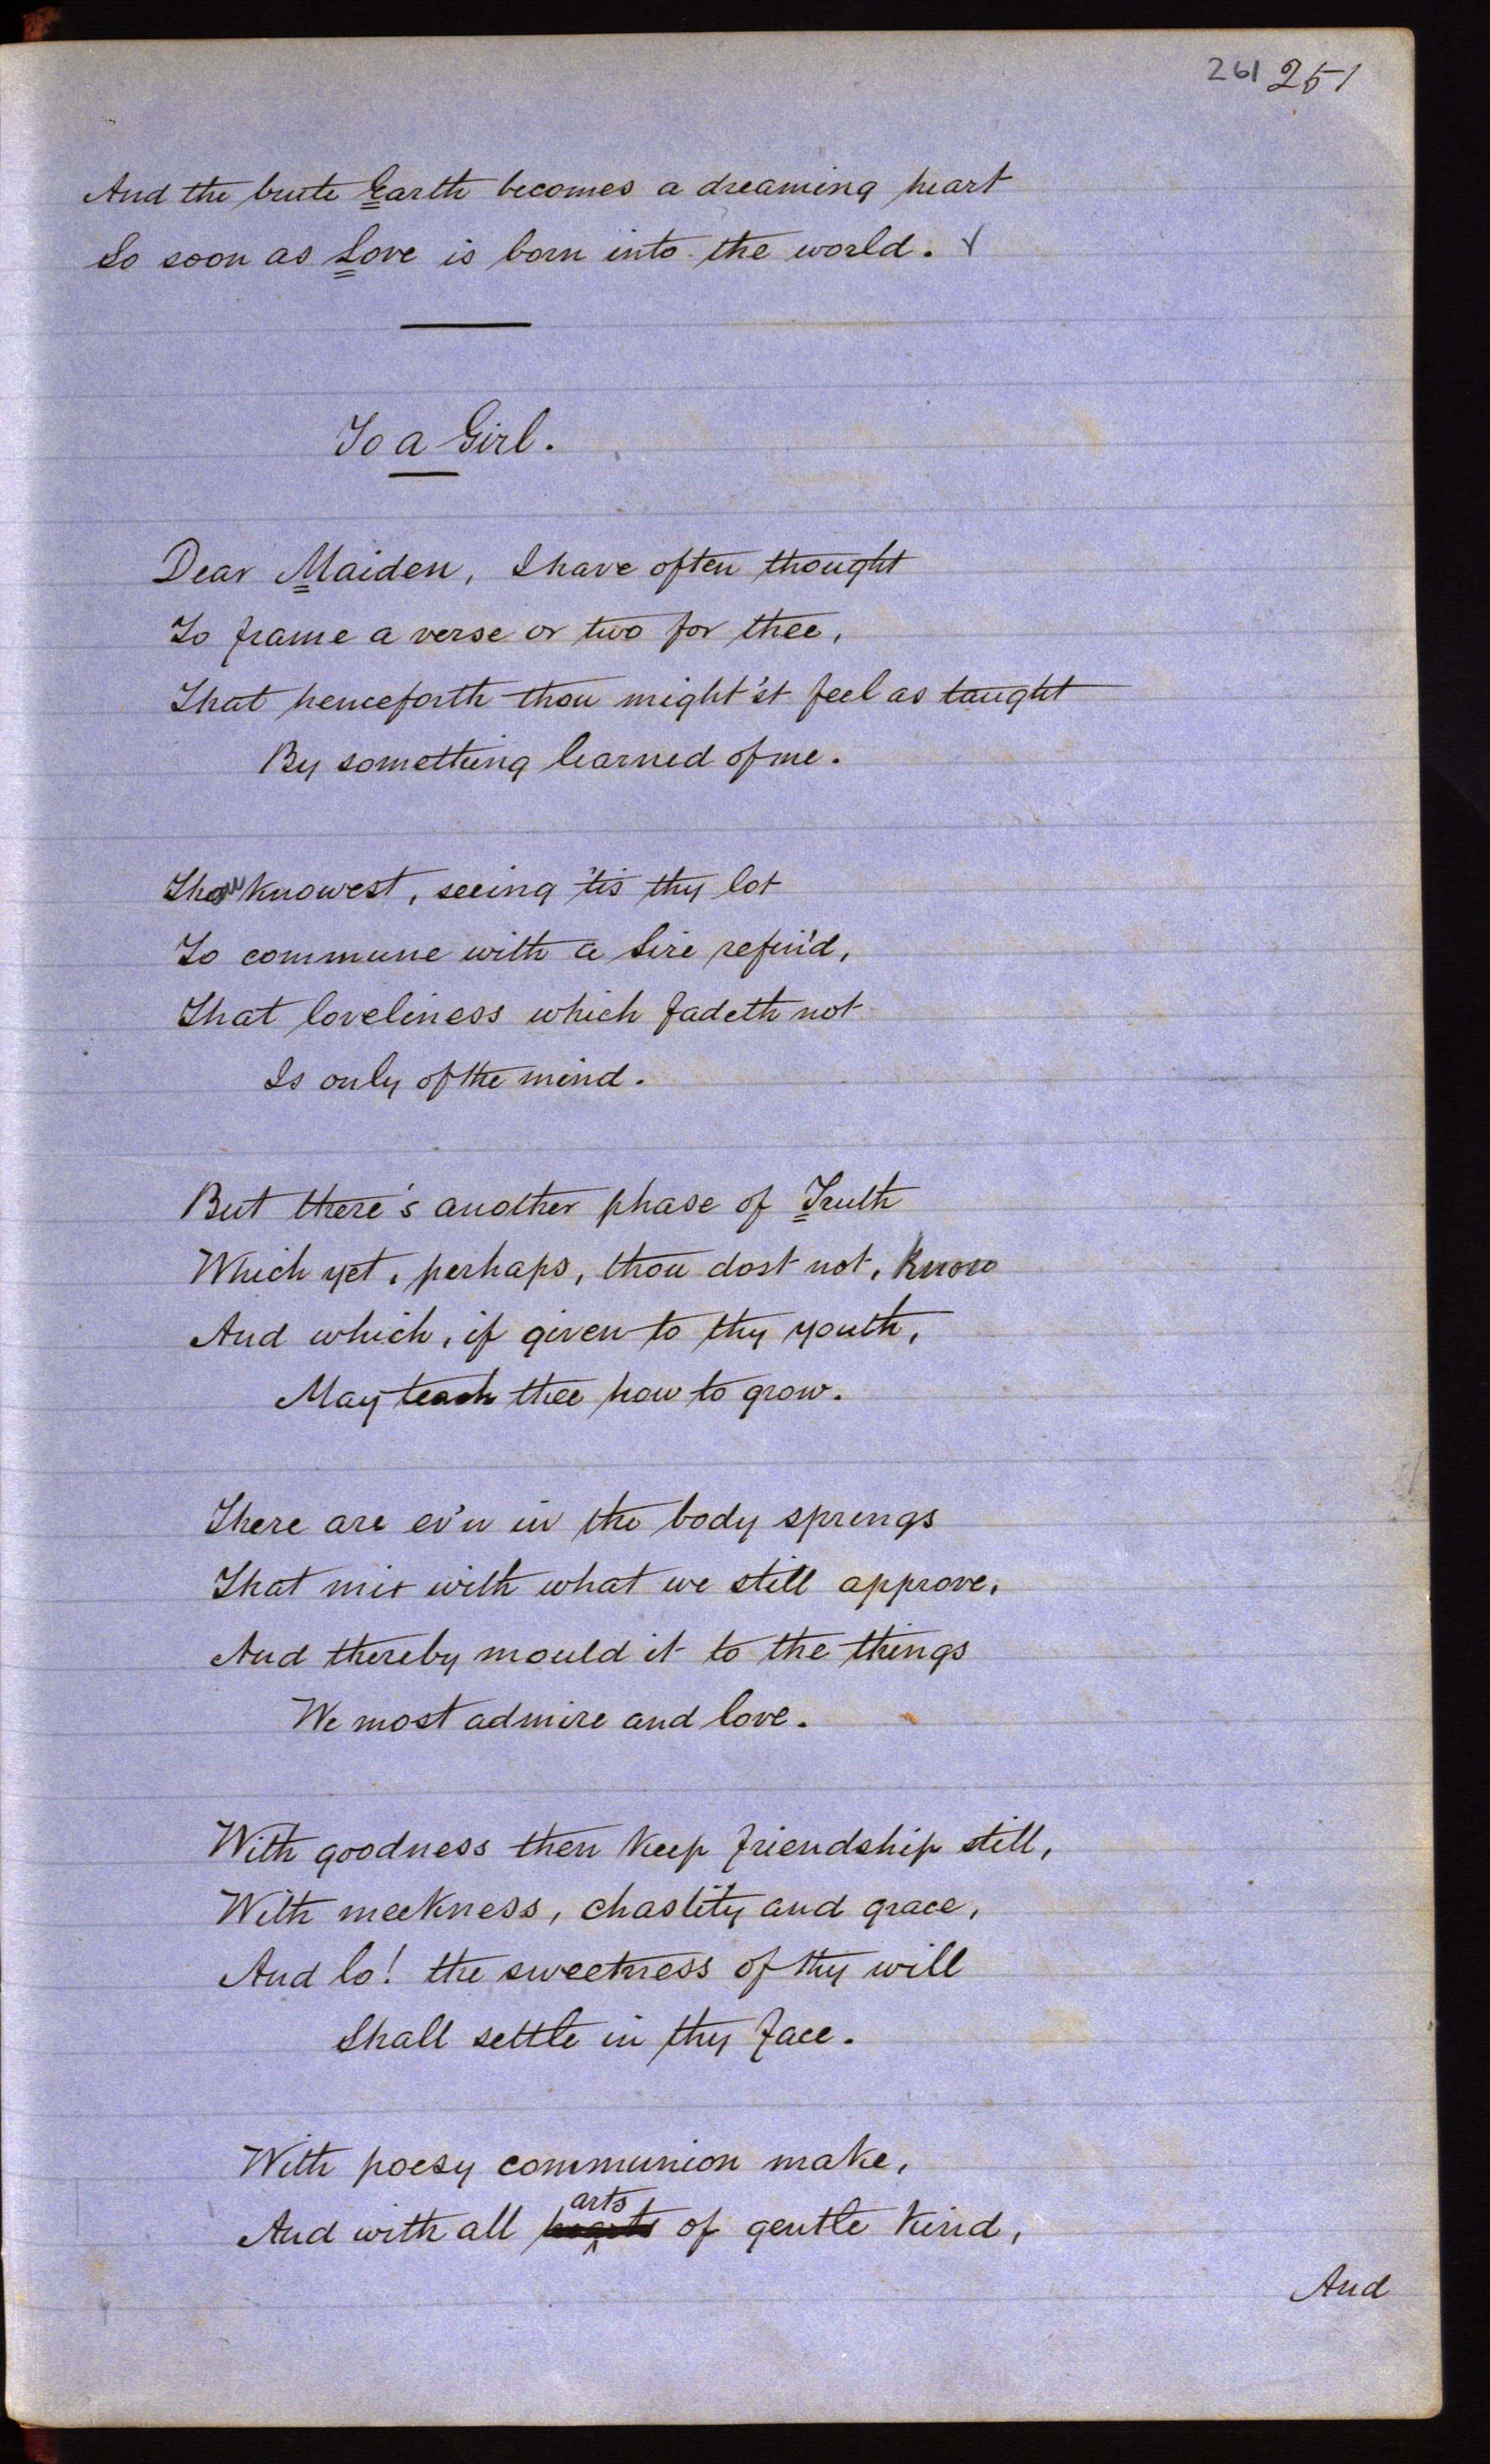 261 251
And the brute Earth becomes a dreaming heart
So soon as Love is born into the world.
To a Girl.
Dear Maiden, I have often thought
To frame a verse or two for thee,
That henceforth thou might'st feel as taught
By something learned of me.
Thou knowest, seeing 'tis thy lot
To commune with a Sire refin'd,
That loveliness which fadeth not
Is only of the mind.
But there's another phase of Truth
Which yet, perhaps, thou dost not, know
And which, if given to thy youth,
May teach thee how to grow.
There are ev'n in the body springs
That mix with what we still approve,
And thereby mould it to the things
We most admire and love.
With goodness then keep friendship still,
With meekness, chastity and grace,
And lo! the sweetness of thy will
Shall settle in thy face.
With poesy communion make,
arts
And with all hearts of gentle kind,
And